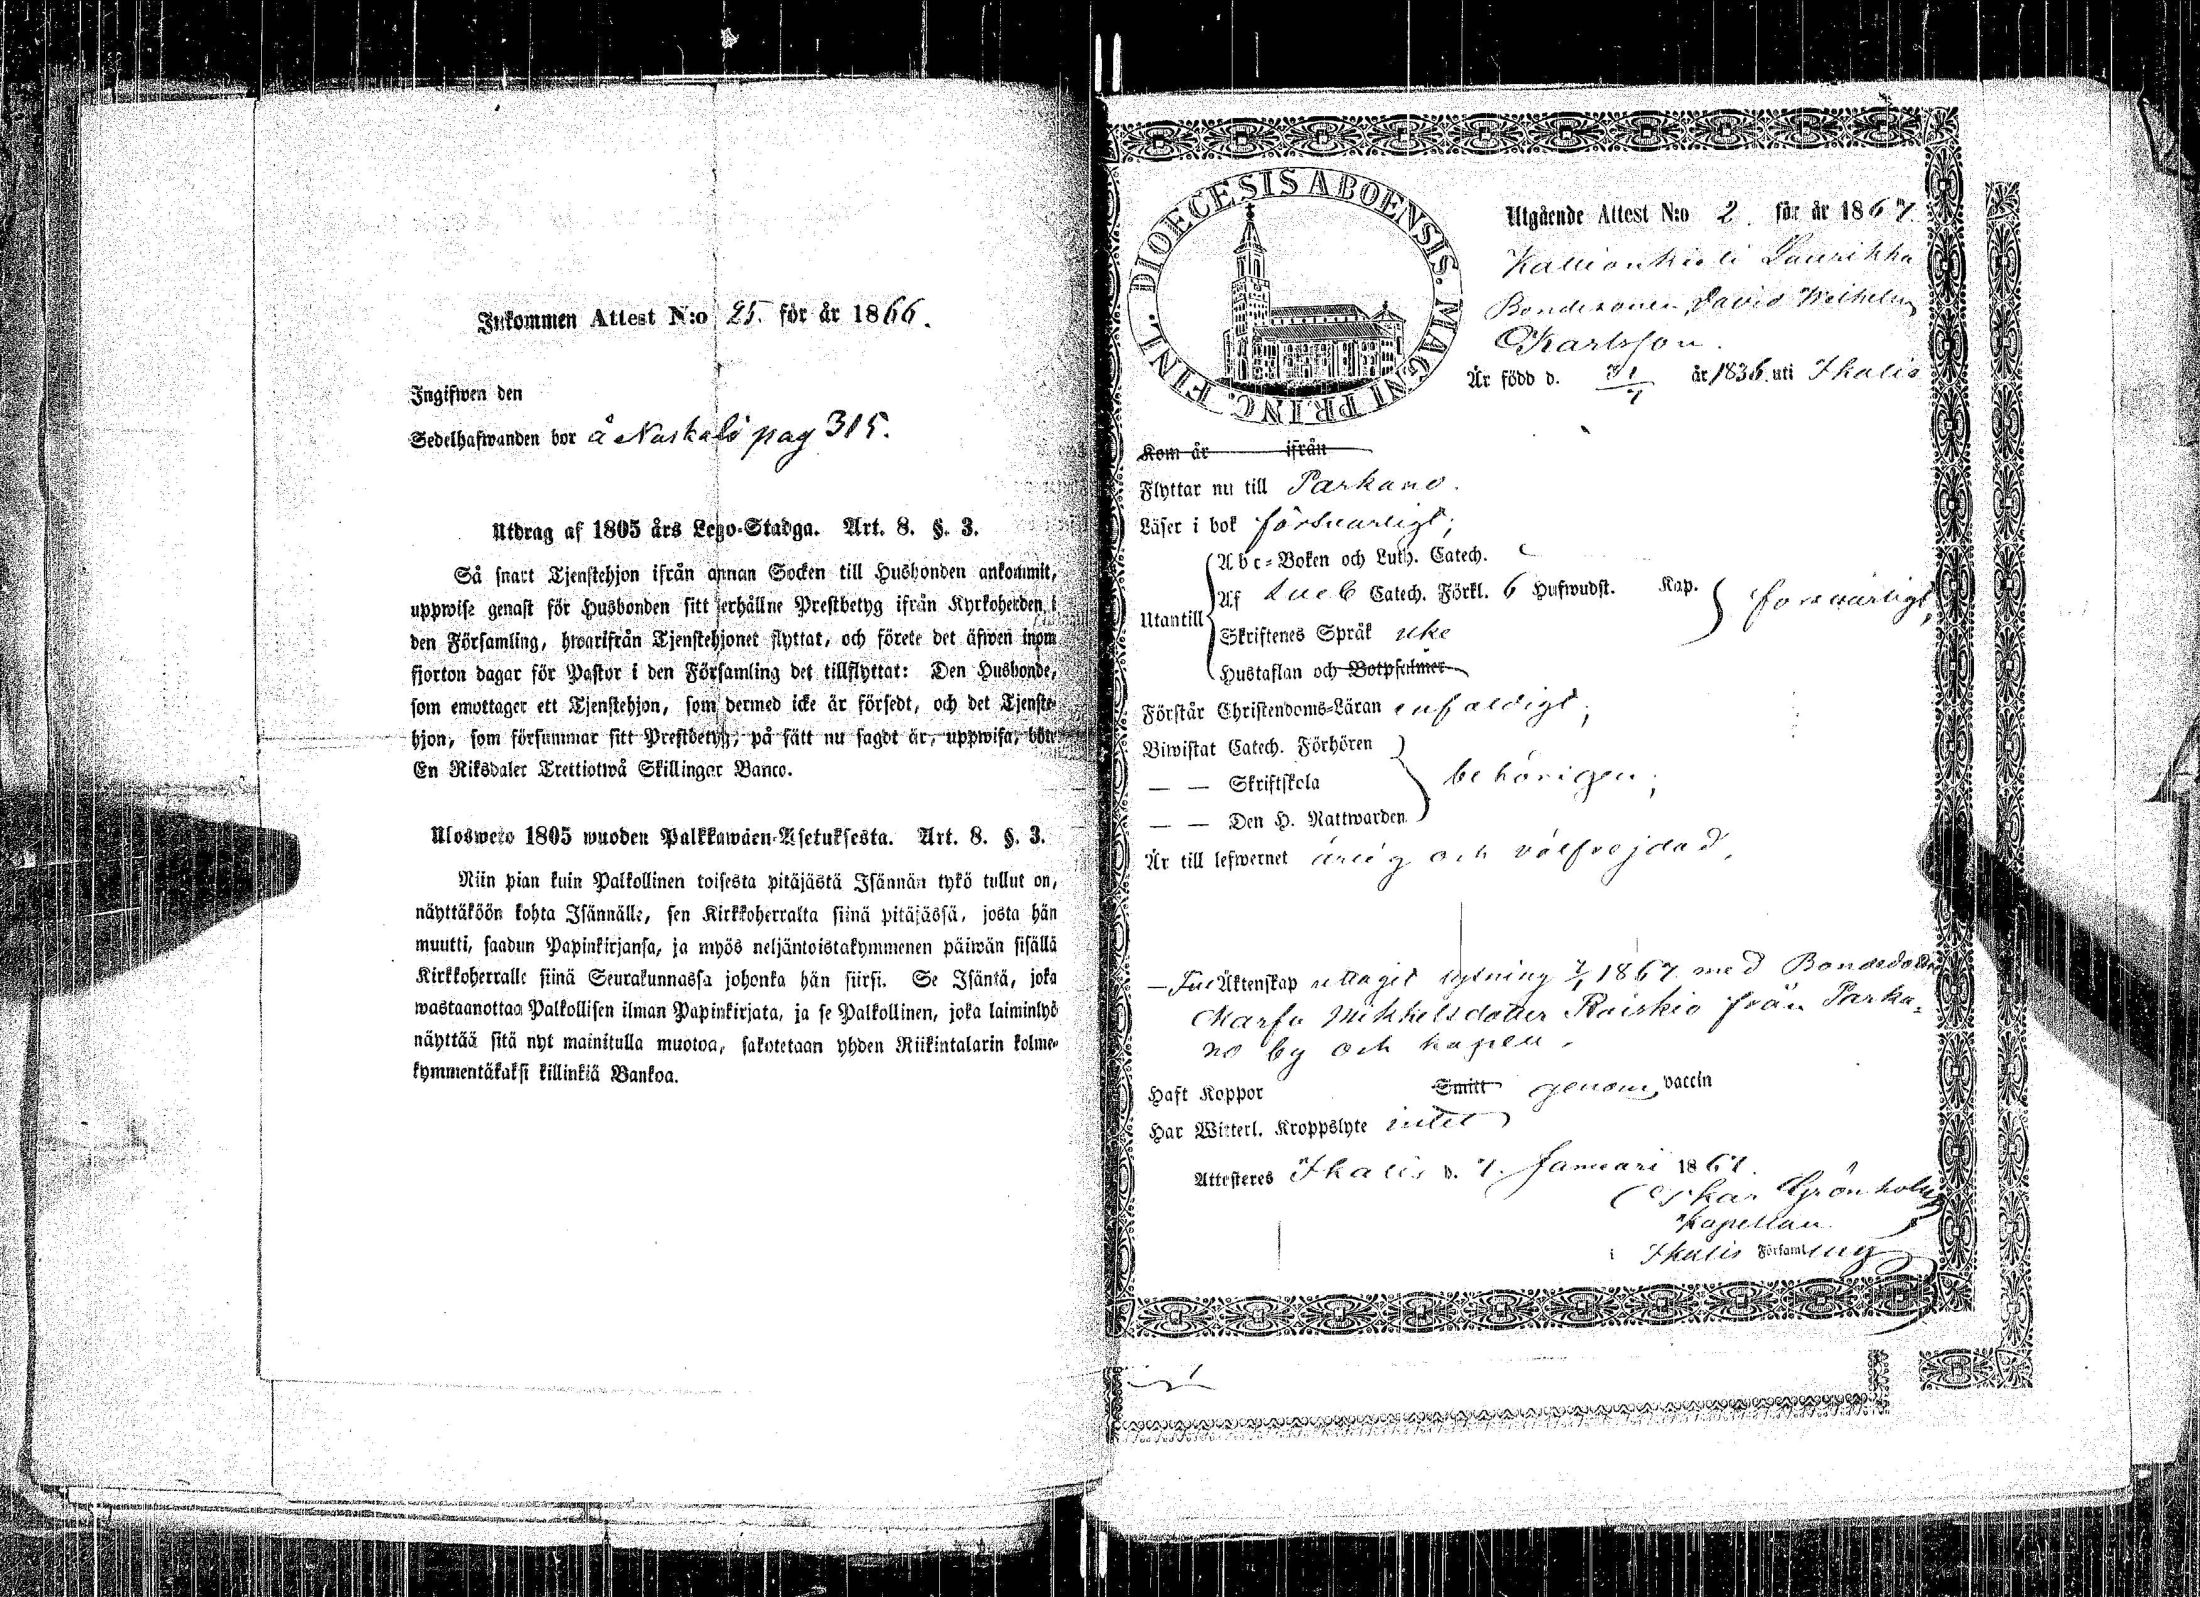 Inkommen Attest N:o 25. för år 1866.
Ingifwen den
Sedelhafwanden bor å Naskali pag 315.
Utdrag af 1805 års Lego-Stadga. Art. 8. §. 3.
Så snart Tjenstehjon ifrån annan Socken till Husbonden ankommit,
uppwise genast för Husbonden sitt erhållne Prestbetyg ifrån Kyrkoherden i
den Församling, hwarifrån Tjenstehjonet flyttat, och förete det äfwen inom
fjorton dagar för Pastor i den Församling det tillflyttat: Den Husbonde,
som emottager ett Tjenstehjon, som dermed icke är försedt, och det Tjenste-
hjon, som försummar sitt Prestbetyg, på sätt nu sagdt är, uppwisa, böte
En Riksdaler Trettiotwå Skillingar Banco.
Uloswelo 1805 wuoden Palkkawäen-Asetuksesta. Art. 8. §. 3.
Niin pian kuin Palkollinen toisesta pitäjästä Isännän tykö tullut on,
näyttäköön kohta Isännälle, sen Kirkkoherralta siinä pitäjässä, josta hän
muutti, saadun Papinkirjansa, ja myös neljäntoistakymmenen päiwän sisällä
Kirkkoherralle siinä Seurakunnassa johonka hän siirsi. Se Isäntä, joka
wastaanottaa Palkollisen ilman Papinkirjata, ja se Palkollinen, joka laiminlyö
näyttää sitä nyt mainitulla muotoa, sakotetaan yhden Riikintalarin kolme-
kymmentäkaksi killinkiä Bankoa.
DIOECESIS ABOENSIS. MAGNI PRINC. FINL.
Utgående Attest N:o 2. för år 1867.
Kallionkieli Laurikka
Bondesonen, David Wilhelm
Karlsson.
Är född d. 31/7 år 1836. uti Ikalis
Kom år ifrån
Flyttar nu till Parkano.
Läser i bok försvarligt;
Utantill
Abc-Boken och Luth. Catech.
Af Catech. Förkl. 6 Hufwudst. Kap. försvarligt,
Skriftenes Språk icke
Hustaflan och Botpsalmer
Förstår Christendoms-Läran enfaldigt;
Biwistat Catech. Förhören
— — Skriftskola behörigen;
— — Den H. Nattwarden
Är till lefwernet ärlig och välfrejdad.
— Till Äktenskap uttagit lysning 7/1 1867 med Bondedottren
Maria Mikkelsdotter Raiskio från Parka-
no by och kapell.
Haft Koppor Smitt genom vaccin
Har Witterl. Kroppslyte intet
Attesteres Ikalis d. 7. Januari 1867.
Oskar Grönholm
Kapellan
i Ikalis Församling